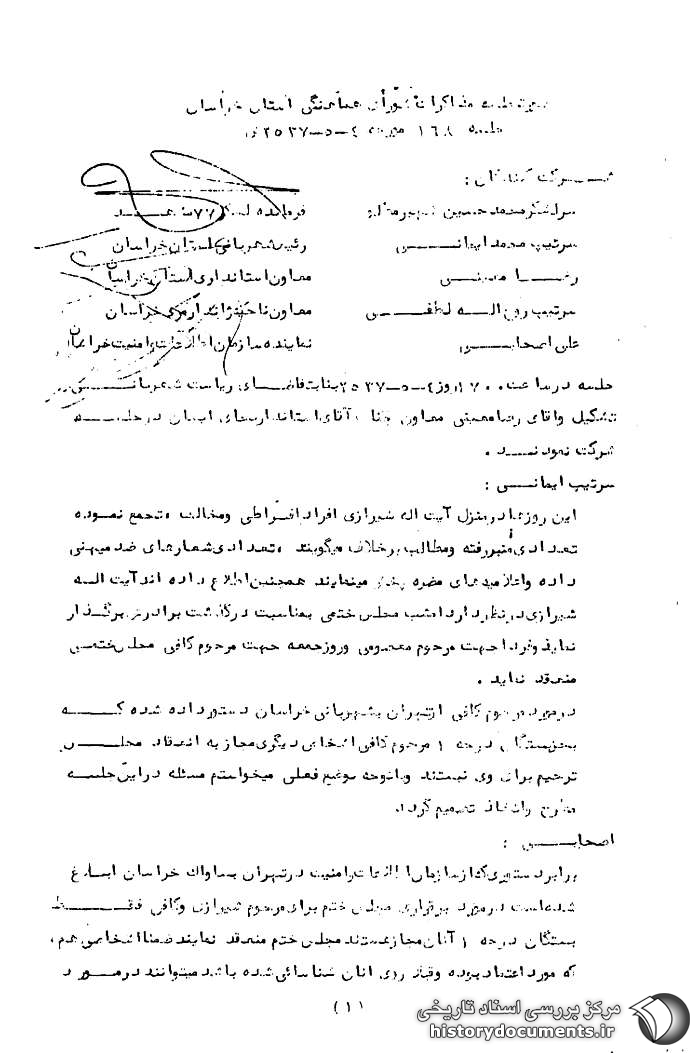 صورتجلسه مذاکرات شورای هماهنگی استان خراسان
جلسه ۱٦۸ مورخه ٤-۵-۲۵۳۷
شرکت کنندگان :
سرلشکر محمد حسین فرمانده لشکر ۷۷
سرتیپ محمد ایمانی رئیس شهربانی استان خراسان
رضا معینی معاون استانداری استان خراسان
سرتیپ روح اله لطفی معاون ناحیه ژاندارمری خراسان
علی اصحابی نماینده سازمان اطلاعات و امنیت خراسان
جلسه در ساعت روز ٤-۵-۲۵۳۷ بنا بتقاضای ریاست شهربانی
تشکیل و آقای رضا معینی معاون جناب آقای استاندار بجای ایشان در جلسه
شرکت نمودند .
سرتیپ ایمانی :
این روزها در منزل آیت اله شیرازی افراد افراطی و مخالف ، تجمع نموده
تعدادی منبر رفته و مطالب بر خلاف میگویند ، تعدادی شعارهای ضد میهنی
داده و اعلامیه های مضره پخش مینمایند همچنین اطلاع داده اند آیت اله
شیرازی در نظر دارد امشب مجلس ختمی بمناسبت درگذشت برادرش برگذار
نماید و فردا جهت مرحوم معصومی و روز جمعه جهت مرحوم کافی مجلس ختمی
منعقد نماید .
در مورد مرحوم کافی از تهران بشهربانی خراسان دستور داده شده که
بجز بستگان درجه ۱ مرحوم کافی اشخاص دیگری مجاز به انعقاد مجلس
ترحیم برای وی نیستند و با توجه بوضع فعلی میخواستم مسئله در این جلسه
مطرح و اتخاذ تصمیم گردد
اصحابی :
برابر دستوری که از سازمان اطلاعات و امنیت در تهران بساواک خراسان ابلاغ
شده است در مورد برقراری مجلس ختم برای مرحوم شیرازی و کافی فقط
بستگان درجه ۱ آنان مجاز هستند مجلس ختم منعقد نمایند ضمنا اشخاصی هم ،
که مورد اعتماد بوده و قبلا روی آنان شناسائی شده باشد میتوانند در مورد
(۱)
مرکز بررسی اسناد تاریخی
historydocuments.ir